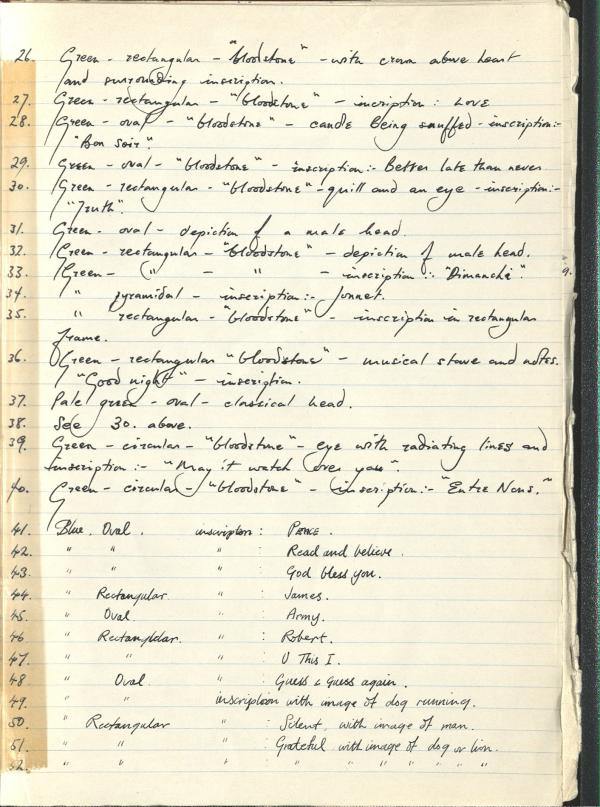 26. Green - rectangular - "bloodstone" - with crown above heart
and surrounding inscription.
27. Green - rectangular - "bloodstone" - incription : LOVE
28. Green - oval - "bloodstone" - candle being snuffed - inscription:-
"Bon Soir".
29. Green - oval - "bloodstone" - inscription:- Better late than never
30. Green - rectangular - "bloodstone" - quill and an eye - inscription:-
"Truth".
31. Green - oval - depiction of a male head.
32. Green - rectangular - "bloodstone" - depiction of male head.
33. Green - " - " - inscription:- "Dimanche".
34. " pyramidal - inscription:- Jonnet.
35. " rectangular - "bloodstone" - inscription in rectangular
frame.
36. Green - rectangular "bloodstone" - musical stave and notes.
"Good night" - inscription.
37. Pale green - oval - classical head.
38. See 30. above.
39. Green - circular - "bloodstone" - eye with radiating lines and
inscription:- "May it watch over you".
40. Green - circular - "bloodstone" - inscription:- "Entre Nous."
41. Blue. Oval. inscription :
42. " " " : Read and believe.
43. " " " : God bless you.
44. " Rectangular " : James.
45. " Oval " : Army.
46 " Rectangular. " : Robert.
47. " " " : U This I.
48 " Oval " : Guess & Guess again.
49. " " inscription with image of dog running.
50. " Rectangular " : Silent, with image of man.
51. " " " : Grateful with image of dog or lion.
52. " " " " " " " " " "